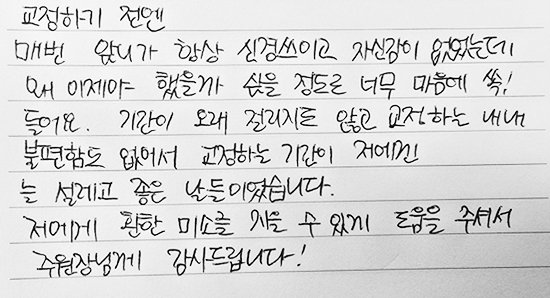 교정하기 전엔
매번 앞니가 항상 신경쓰이고 자신감이 없었는데
왜 이제야 했을까 싶을 정도로 너무 마음에 쏙!
들어요. 기간이 오래 걸리지도 않고 교정하는 내내
불편함도 없어서 교정하는 기간이 저에겐
늘 설레고 좋은 날들이었습니다.
저에게 환한 미소를 지을 수 있게 도움을 주셔서
주원장님께 감사드립니다!